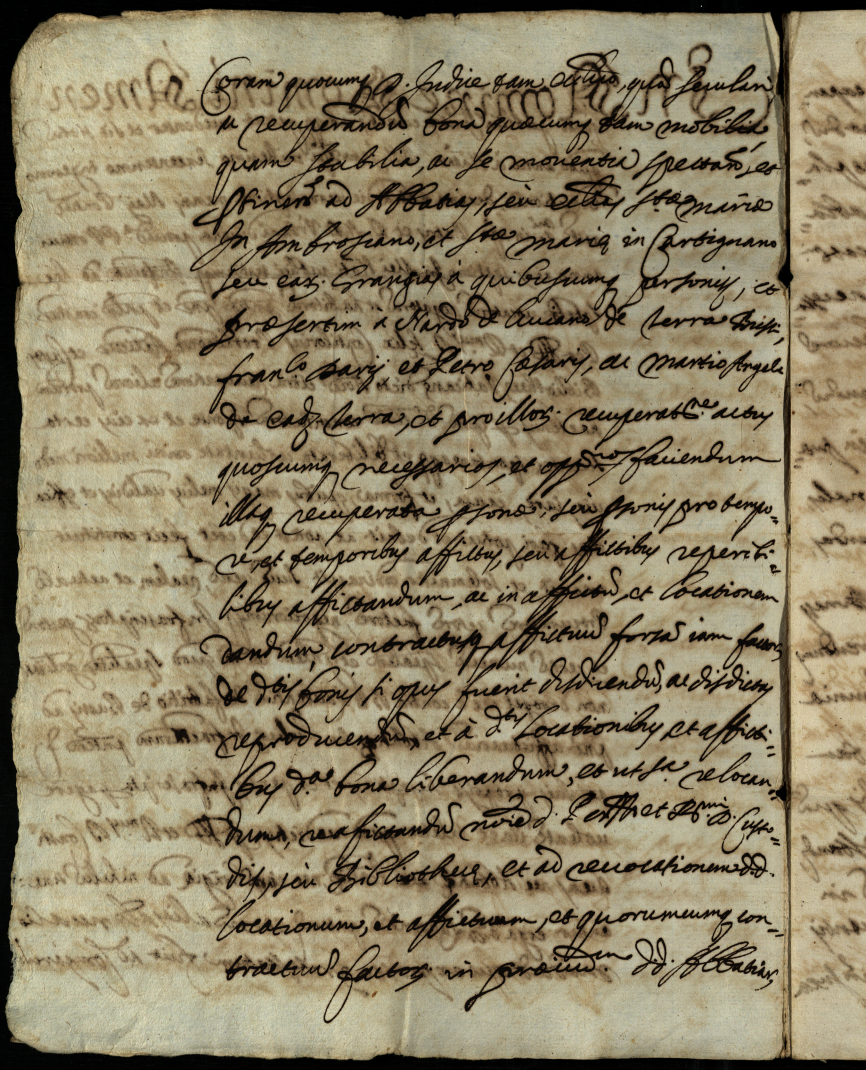 Coram quocumq D. Iudice tam eccl.ico, quā seculari,
ac recuperandū bona quæcumq tam mobilia,
quam stabilia, ac se moventia spectañ, et
ptineñ ad Abbatias, seu eccl.ias S.tæ mariæ
In Ambrosiano, et S.tæ mariæ in Carbignano
seu eaꝝ. Grangias à quibuscumq personis, et
præsertim à Nardo de Luciano de terra
fran.co Paris, et Petro Cæsaris, ac martio Angeli
de ead. terra, et pro illoꝝ. recuperat.ne actus
quoscumq necessarios, et opp.nos faciendum
illaq recuperata psonæ, seu psonis pro tempo=
re, et temporibus affictus, seu affictibus reperibi=
libus affictandum, ac in affictū, et locationem
dandum, contractusq affictuū forsā iam factos
de d.tis bonis si opus fuerit disdicendū, ac disdictas
reproducendū, et à d.tis locationibus, et afficti=
bus d.a bona liberandum, et ut s.a relocan=
dum, reafictandū noīe d. et R.mi D. Custo=
dis, seu Bibliothecæ, et ad revocationem d.d.
locationum, et affictuum, et quorumcumq con=
tractuū factoꝝ. in præiud.m d.d. Abbatiaꝝ